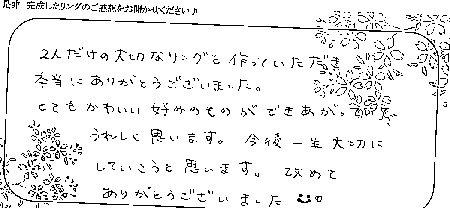 是非 完成したリングのご感想をお聞かせください♪
2人だけの大切なリングを作っていただき
本当にありがとうございました。
とてもかわいい好みのものができあがって
うれしく思います。 今後一生大切に
していこうと思います。 改めて
ありがとうございました